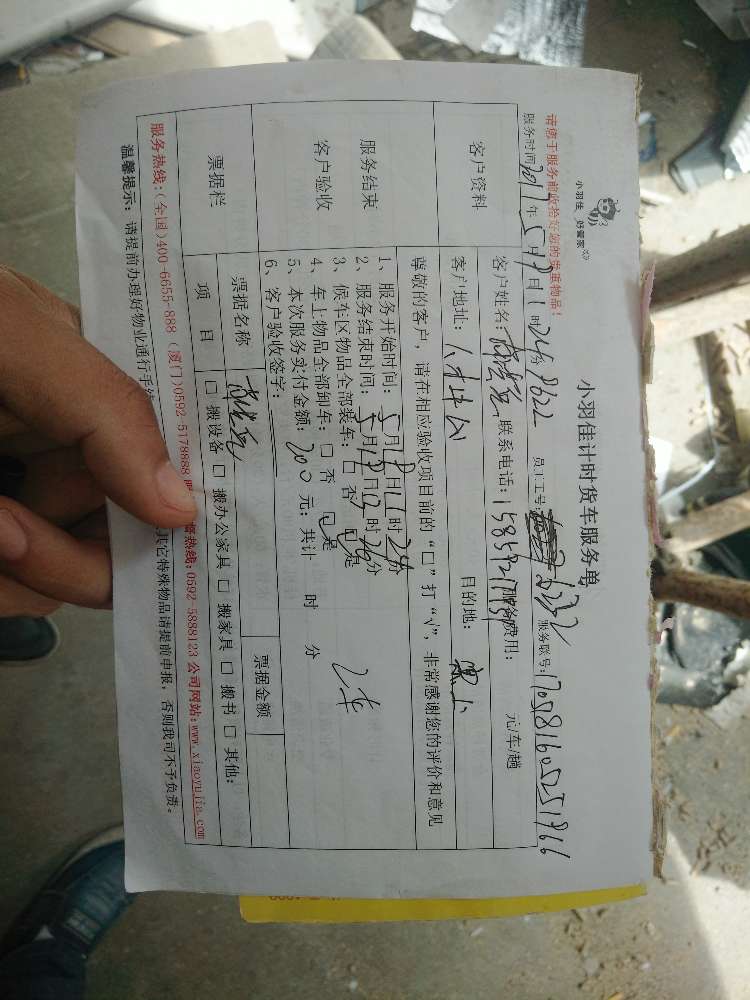 小羽佳 好管家
小羽佳计时货车服务单
请您于服务前收拾好您的贵重物品!
服务时间2017年5月 日11时24分8622 员工工号: 服务联号:170581605251966
客户资料
客户姓名: 联系电话: 服务费用: 元/车/趟
客户地址: 目的地:
尊敬的客户,请在相应验收项目前的“□”打“√”,非常感谢您的评价和意见
服务结束
客户验收
1、服务开始时间:5月 日11时24分
2、服务结束时间:5月 日13时24分
3、候车区物品全部装车:□ 否 ☑是
4、车上物品全部卸车:□ 否 ☑是
5、本次服务实付金额:200元;共计 时 分
6、客户验收签字:
票据栏
票据名称 票据金额
项 目 □ 搬设备 □ 搬办公家具 □ 搬家具 □ 搬书 □ 其他:
服务热线:(全国)400-6655-888 (厦门)0592-5178888 热线:0592-5888123 公司网站:www.xiaoyujia.com
温馨提示:请提前办理好物业通行手 其它特殊物品请提前申报,否则我司不予负责。